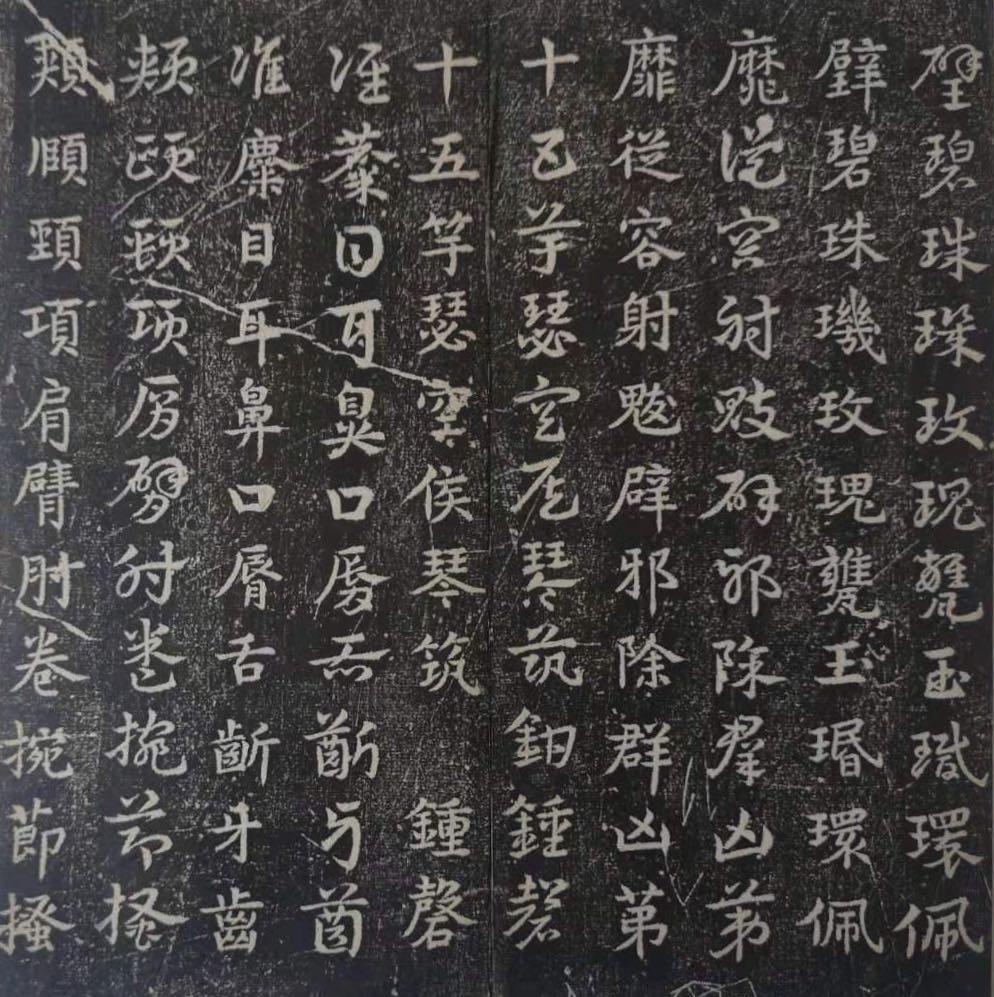 璧碧珠璣玫瑰甕玉環佩
璧碧珠璣玫瑰甕玉環佩
靡從容射魃辟邪除群凶第
靡從容射魃辟邪除群凶第
十五竽瑟空侯琴筑鍾磬
十五竽瑟空侯琴筑鍾磬
准麋目耳鼻口脣舌齗牙齒
准麋目耳鼻口脣舌齗牙齒
頰頤頸項肩臂肘卷捥節搔
頰頤頸項肩臂肘卷捥節搔